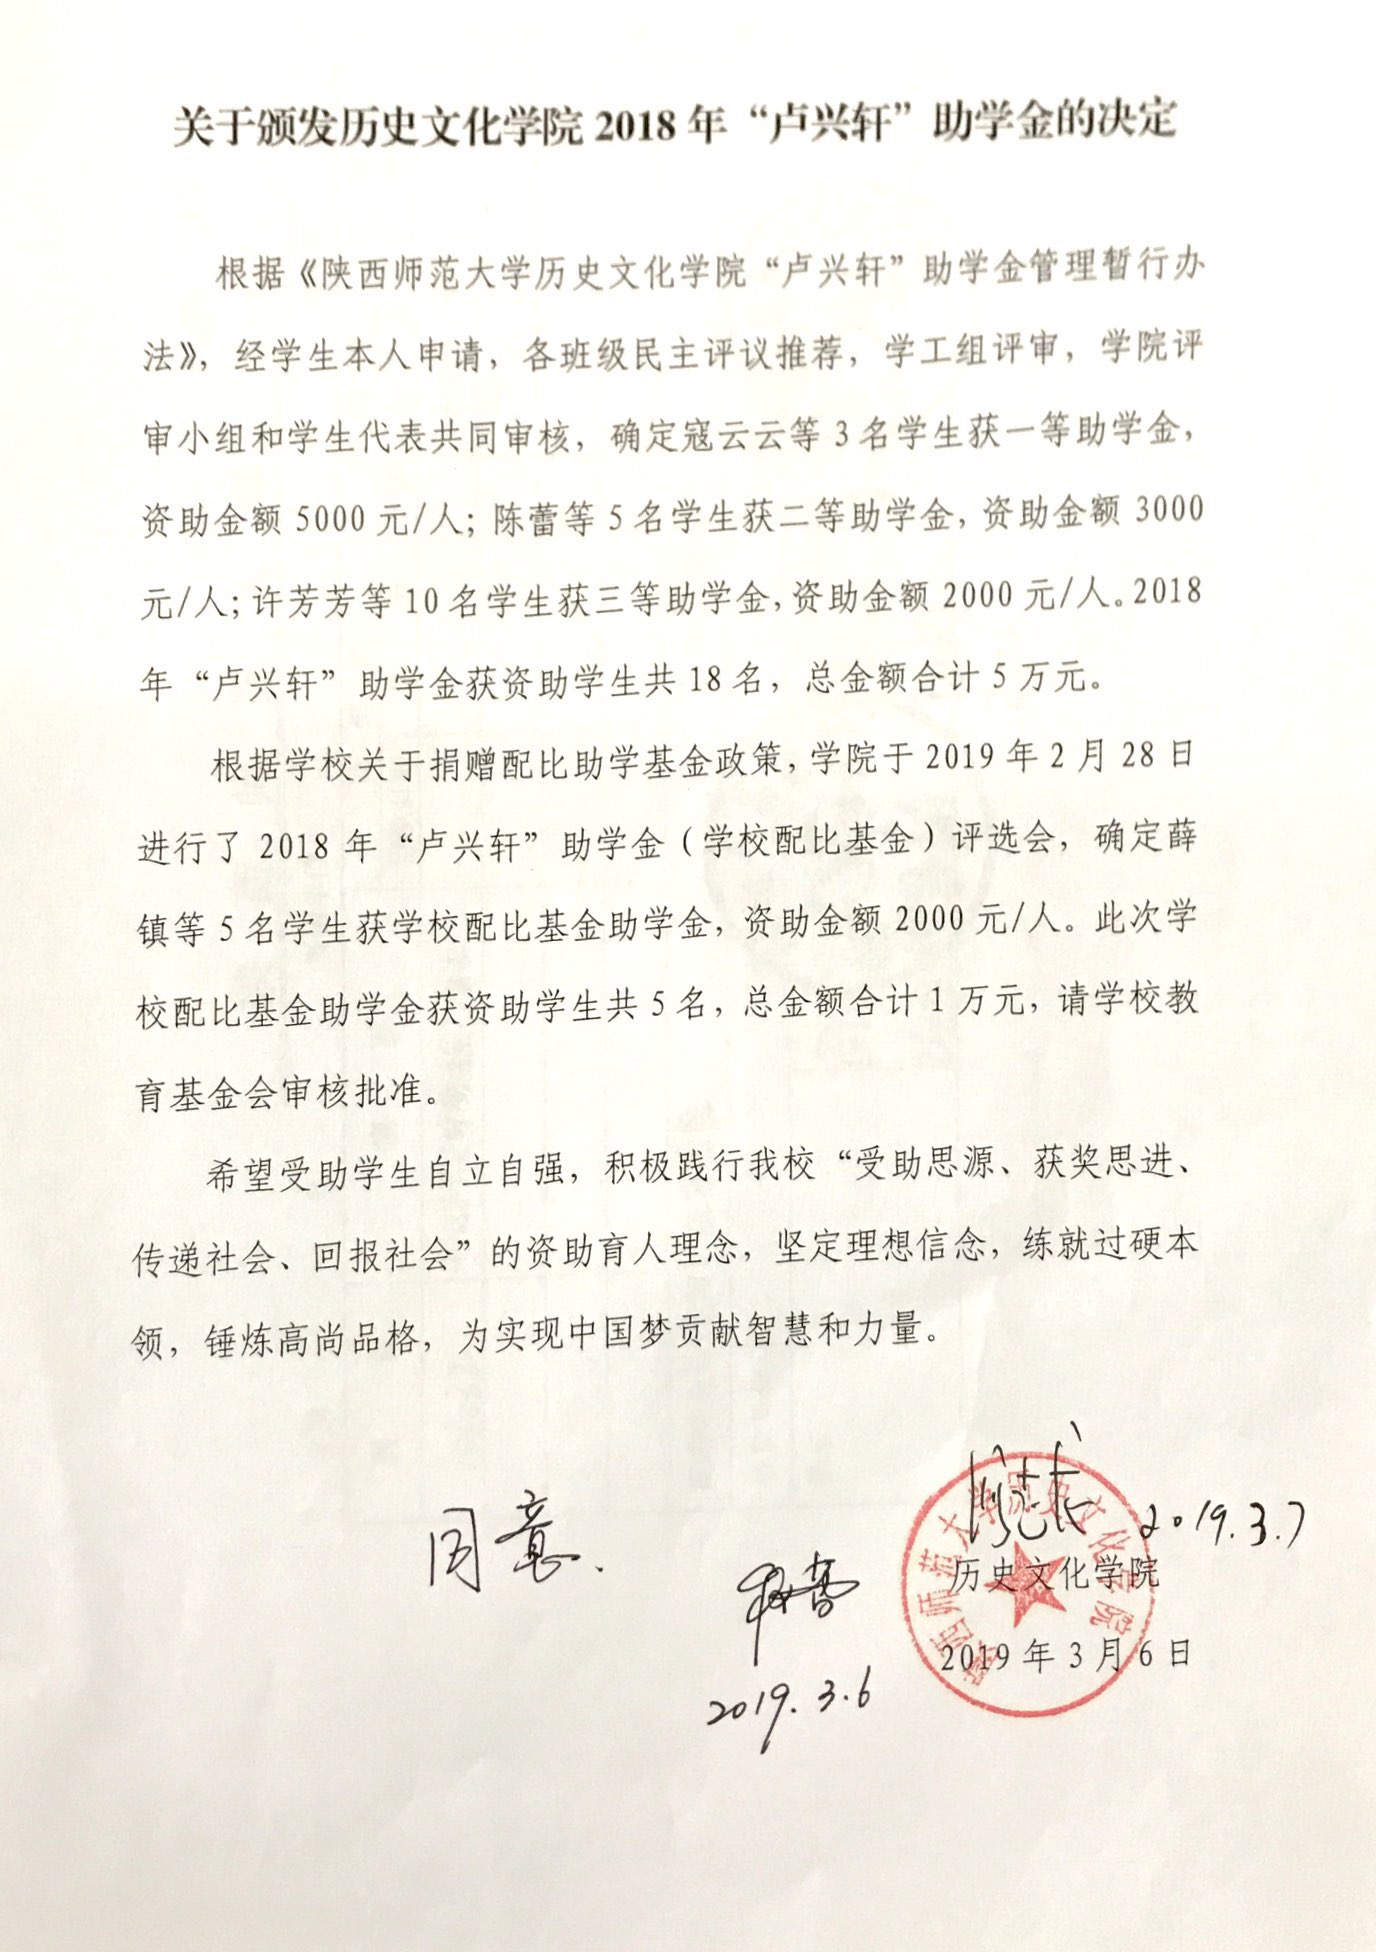 关于颁发历史文化学院 2018 年“卢兴轩”助学金的决定
根据《陕西师范大学历史文化学院“卢兴轩”助学金管理暂行办
法》，经学生本人申请，各班级民主评议推荐，学工组评审，学院评
审小组和学生代表共同审核，确定寇云云等 3 名学生获一等助学金，
资助金额 5000 元/人；陈蕾等 5 名学生获二等助学金，资助金额 3000
元/人；许芳芳等 10 名学生获三等助学金，资助金额 2000 元/人。2018
年“卢兴轩”助学金获资助学生共 18 名，总金额合计 5 万元。
根据学校关于捐赠配比助学基金政策，学院于 2019 年 2 月 28 日
进行了 2018 年“卢兴轩”助学金（学校配比基金）评选会，确定薛
镇等 5 名学生获学校配比基金助学金，资助金额 2000 元/人。此次学
校配比基金助学金获资助学生共 5 名，总金额合计 1 万元，请学校教
育基金会审核批准。
希望受助学生自立自强，积极践行我校“受助思源、获奖思进、
传递社会、回报社会”的资助育人理念，坚定理想信念，练就过硬本
领，锤炼高尚品格，为实现中国梦贡献智慧和力量。
同意.
2019.3.7
陕西师范大学历史文化学院
历史文化学院
2019 年 3 月 6 日
2019.3.6